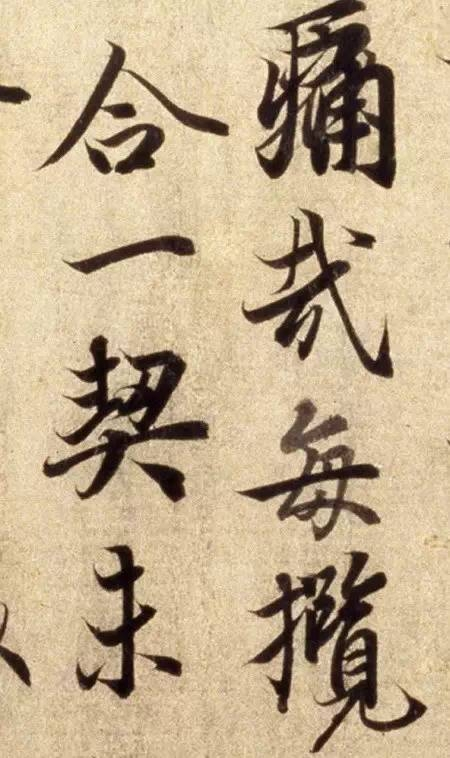 痛哉每攬
合一契未